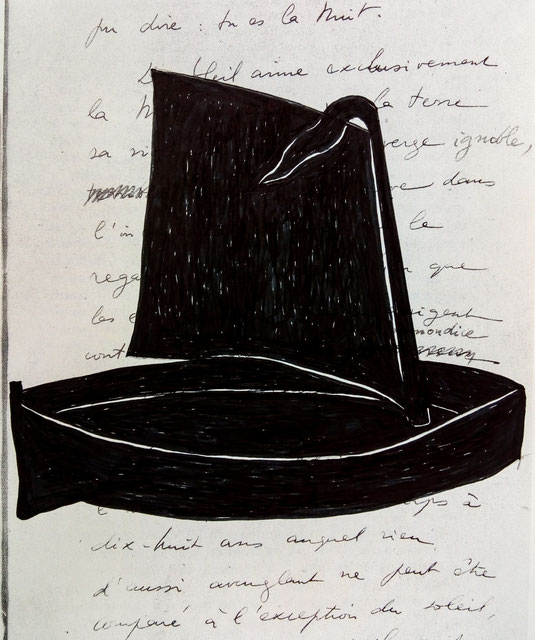 pu dire : tu es la Nuit.
Soleil aime exclusivement
la la terre
sa verge ignoble,
dans
l'in le
rega que
les e igent
mondice
cont
ps à
dix-huit ans auquel rien
d'aussi aveuglant ne peut être
comparé à l'exception du soleil,